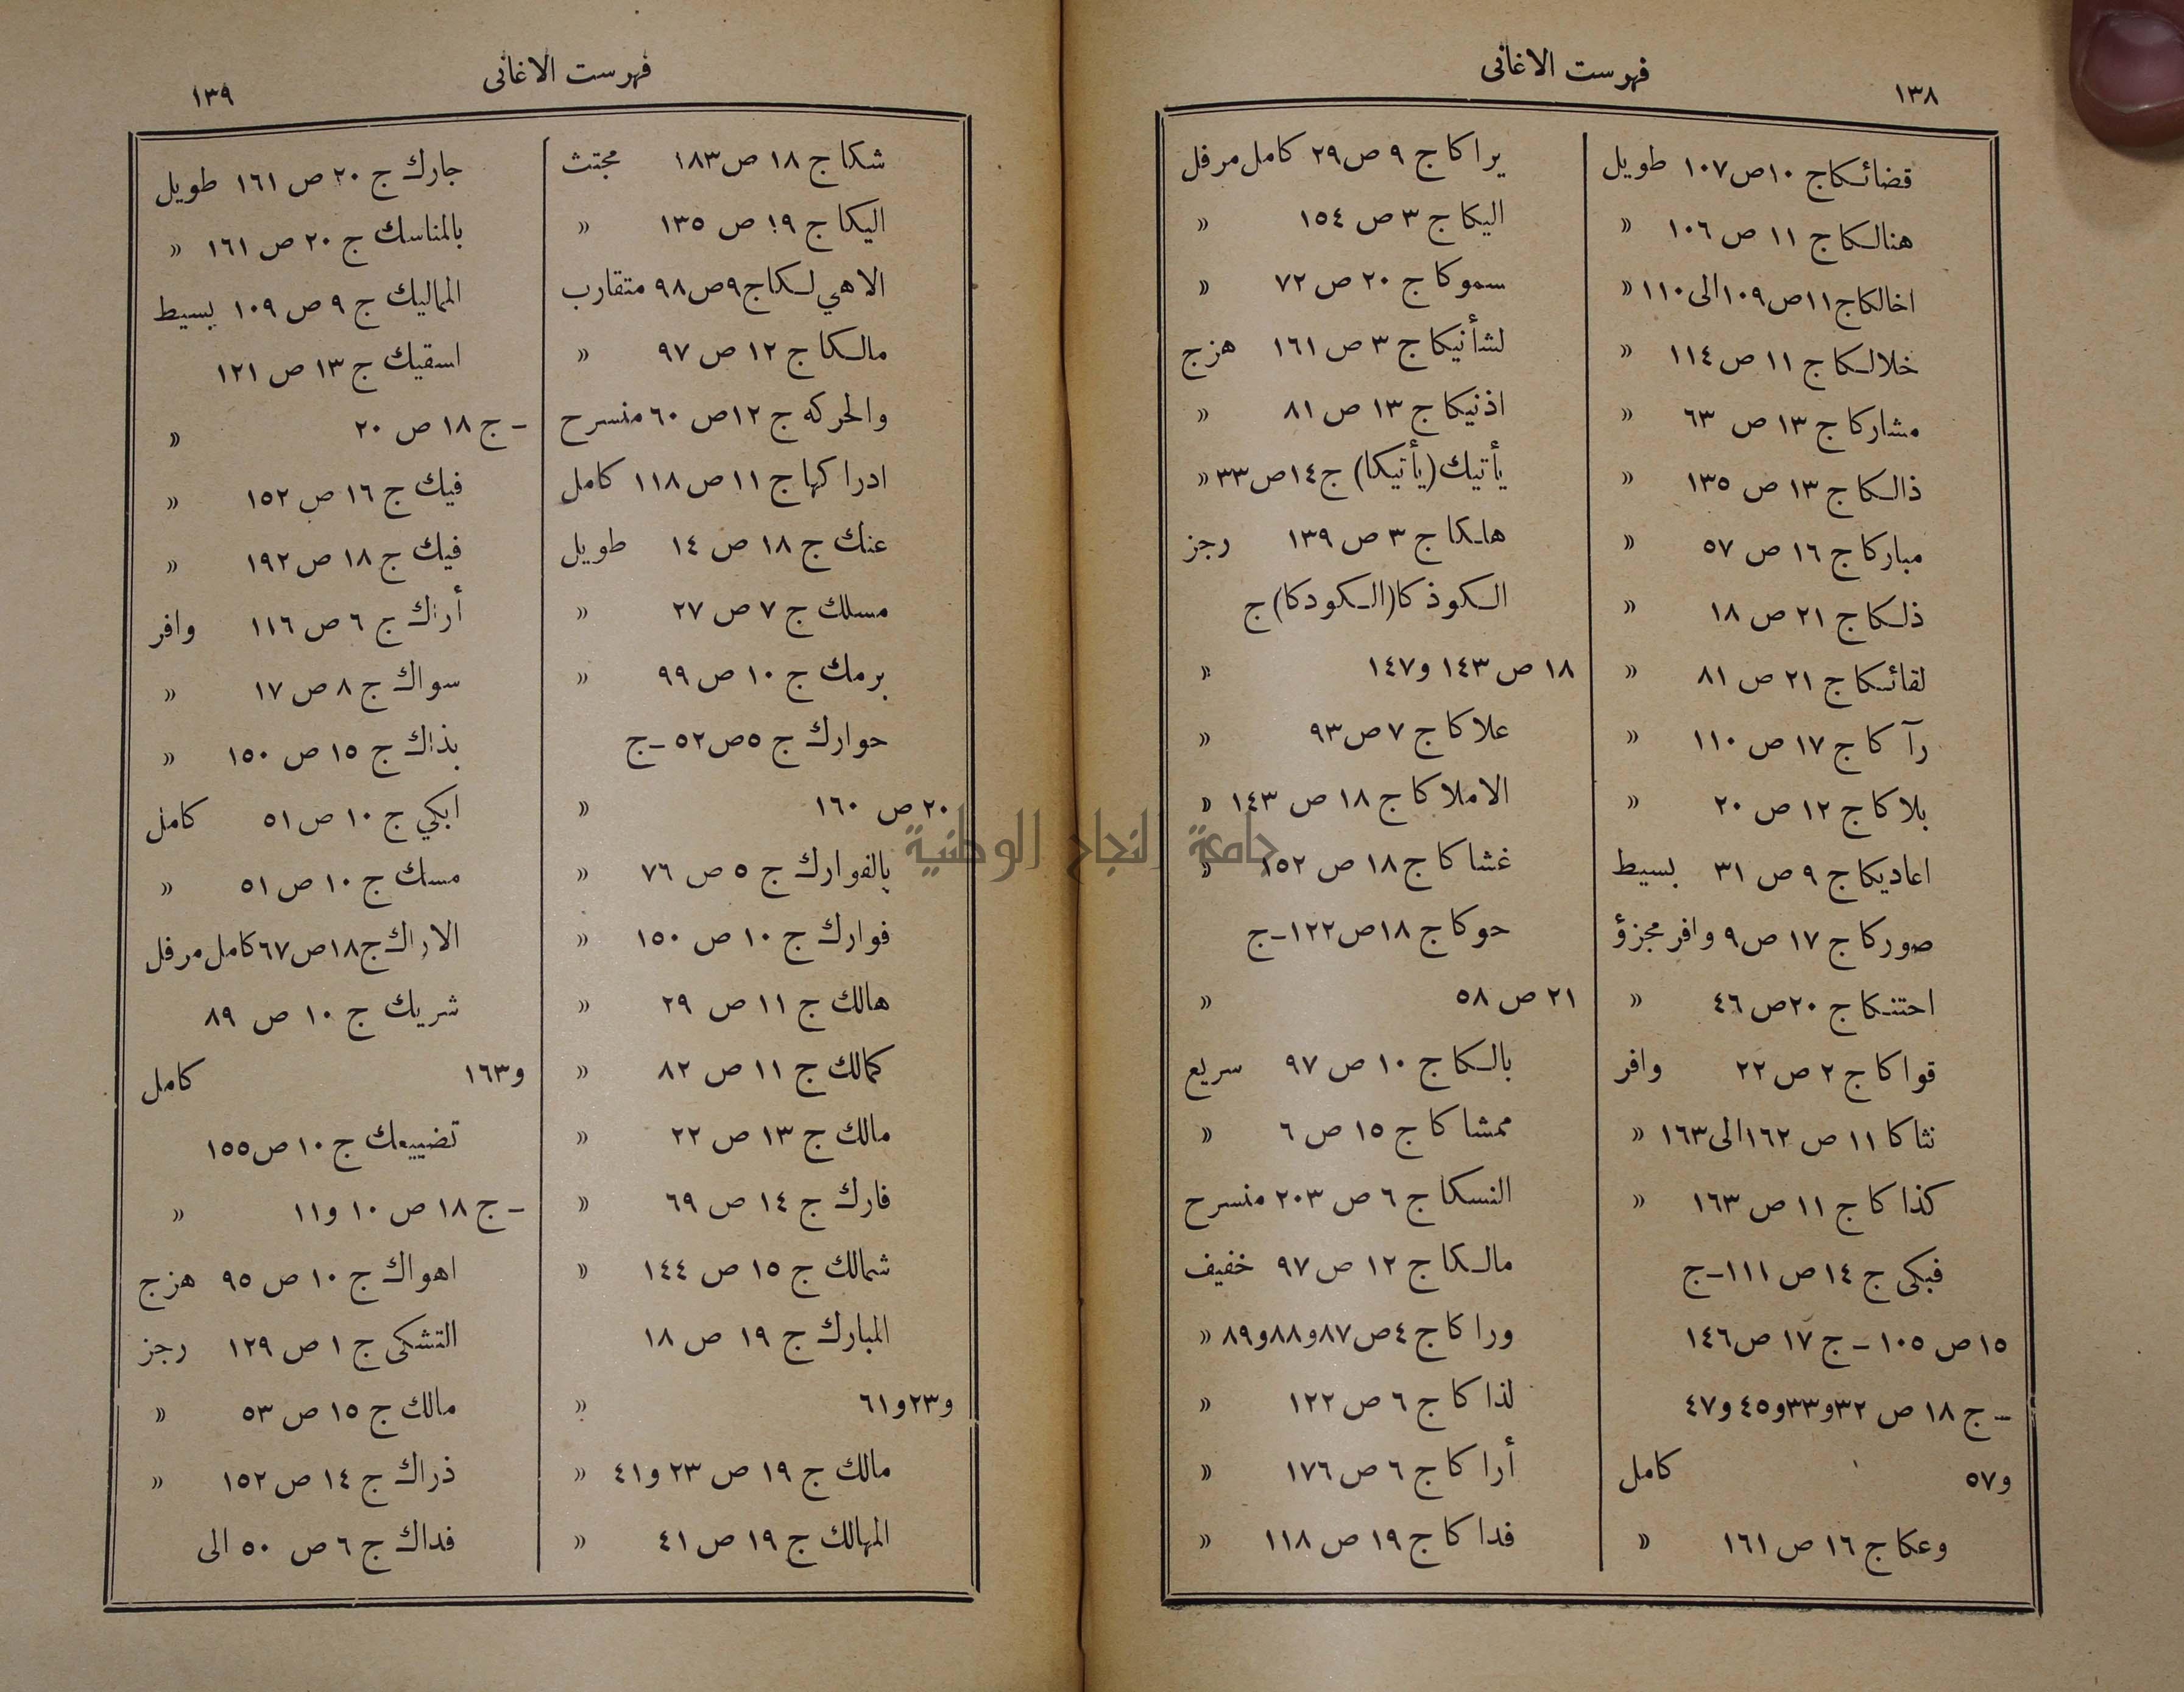 ١٣٨
فهرست الاغانى
قضائكاج ١٠ص١٠٧ طويل
هنالكاج ١١ ص ١٠٦ «
اخالكاج١١ص١٠٩الى١١٠ «
خلالكاج ١١ ص ١١٤ «
مشاركاج ١٣ ص ٦٣ «
ذالكاج ١٣ ص ١٣٥ «
مباركاج ١٦ ص ٥٧ «
ذلكاج ٢١ ص ١٨ «
لقائكاج ٢١ ص ٨١ «
رآ كاج ١٧ ص ١١٠ «
بلاكاج ١٢ ص ٢٠ «
اعاديكاج ٩ ص ٣١ بسيط
صوركاج ١٧ ص٩ وافر مجزؤ
احتنكاج ٢٠ص ٤٦ «
قواكاج ٢ ص ٢٢ وافر
نثاكا ١١ ص ١٦٢الى١٦٣ «
كذاكاج ١١ ص ١٦٣ «
فبكى ج ١٤ ص ١١١-ج
١٥ص ١٠٥ - ج ١٧ ص١٤٦
- ج ١٨ ص ٣٢و٣٣و٤٥و٤٧
و٥٧ كامل
وعكاج ١٦ ص ١٦١ «
يراكاج ٩ ص٢٩ كامل مرفل
اليكاج ٣ ص ١٥٤ «
سموكاج ٢٠ ص ٧٢ «
لشأنيكاج ٣ ص ١٦١ هزج
اذنيكاج ١٣ ص ٨١ «
يأتيك (يأتيكا) ج١٤ص٣٣ «
هاكاج ٣ ص ١٣٩ رجز
الكوذكا(الكودكا)ج
١٨ ص ١٤٣ و١٤٧ «
علاكاج ٧ ص٩٣ «
الاملاكاج ١٨ ص ١٤٣ «
غشاكاج ١٨ ص ١٥٢ «
حوكاج ١٨ص١٢٢-ج
٢١ ص ٥٨ «
بالكاج ١٠ ص ٩٧ سريع
ممشاكاج ١٥ ص ٦ «
النسكاج ٦ ص ٢٠٣ منسرح
مالكاج ١٢ ص ٩٧ خفيف
وراكاج ٤ص٨٧و٨٨و٨٩ «
لذاكاج ٦ ص ١٢٢ «
أراكاج ٦ ص ١٧٦ «
فداكاج ١٩ ص ١١٨ «
فهرست الاغانى
١٣٩
شكاج ١٨ ص١٨٣ مجتث
اليكاج ١٩ ص ١٣٥ «
الاهي لكاج٩ص٩٨ متقارب
مالكاج ١٢ ص ٩٧ «
والحركه ج ١٢ص ٦٠ منسرح
ادراكهاج ١١ ص ١١٨ كامل
عنك ج ١٨ ص ١٤ طويل
مسلك ج ٧ ص ٢٧ «
برمك ج ١٠ ص ٩٩ «
حوارك ج ٥ص٥٢ -ج
٢٠ ص ١٦٠ «
بالفوارك ج ٥ ص ٧٦ «
فوارك ج ١٠ ص ١٥٠ «
هالك ج ١١ ص ٢٩ «
كمالك ج ١١ ص ٨٢ «
مالك ج ١٣ ص ٢٢ «
فارك ج ١٤ ص ٦٩ «
شمالك ج ١٥ ص ١٤٤ «
المبارك ج ١٩ ص ١٨
و٢٣و٦١ «
مالك ج ١٩ ص ٢٣ و٤١ «
المهالك ج ١٩ ص ٤١ «
جارك ج ٢٠ ص ١٦١ طويل
بالمناسك ج ٢٠ ص ١٦١ «
المماليك ج ٩ ص ١٠٩ بسيط
اسقيك ج ١٣ ص ١٢١
- ج ١٨ ص ٢٠ «
فيك ج ١٦ ص ١٥٢ «
فيك ج ١٨ ص ١٩٢ «
أراك ج ٦ ص ١١٦ وافر
سواك ج ٨ ص ١٧ «
بذاك ج ١٥ ص ١٥٠ «
ابكي ج ١٠ ص ٥١ كامل
مسك ج ١٠ ص ٥١ «
الاراك ج١٨ص٦٧ كامل مرفل
شريك ج ١٠ ص ٨٩
و١٦٣ كامل
تضييعك ج ١٠ ص١٥٥
- ج ١٨ ص ١٠ و١١ «
اهواك ج ١٠ ص ٩٥ هزج
التشكى ج ١ ص ١٢٩ رجز
مالك ج ١٥ ص ٥٣ «
ذراك ج ١٤ ص ١٥٢ «
فداك ج ٦ ص ٥٠ الى
جامعة النجاح الوطنية